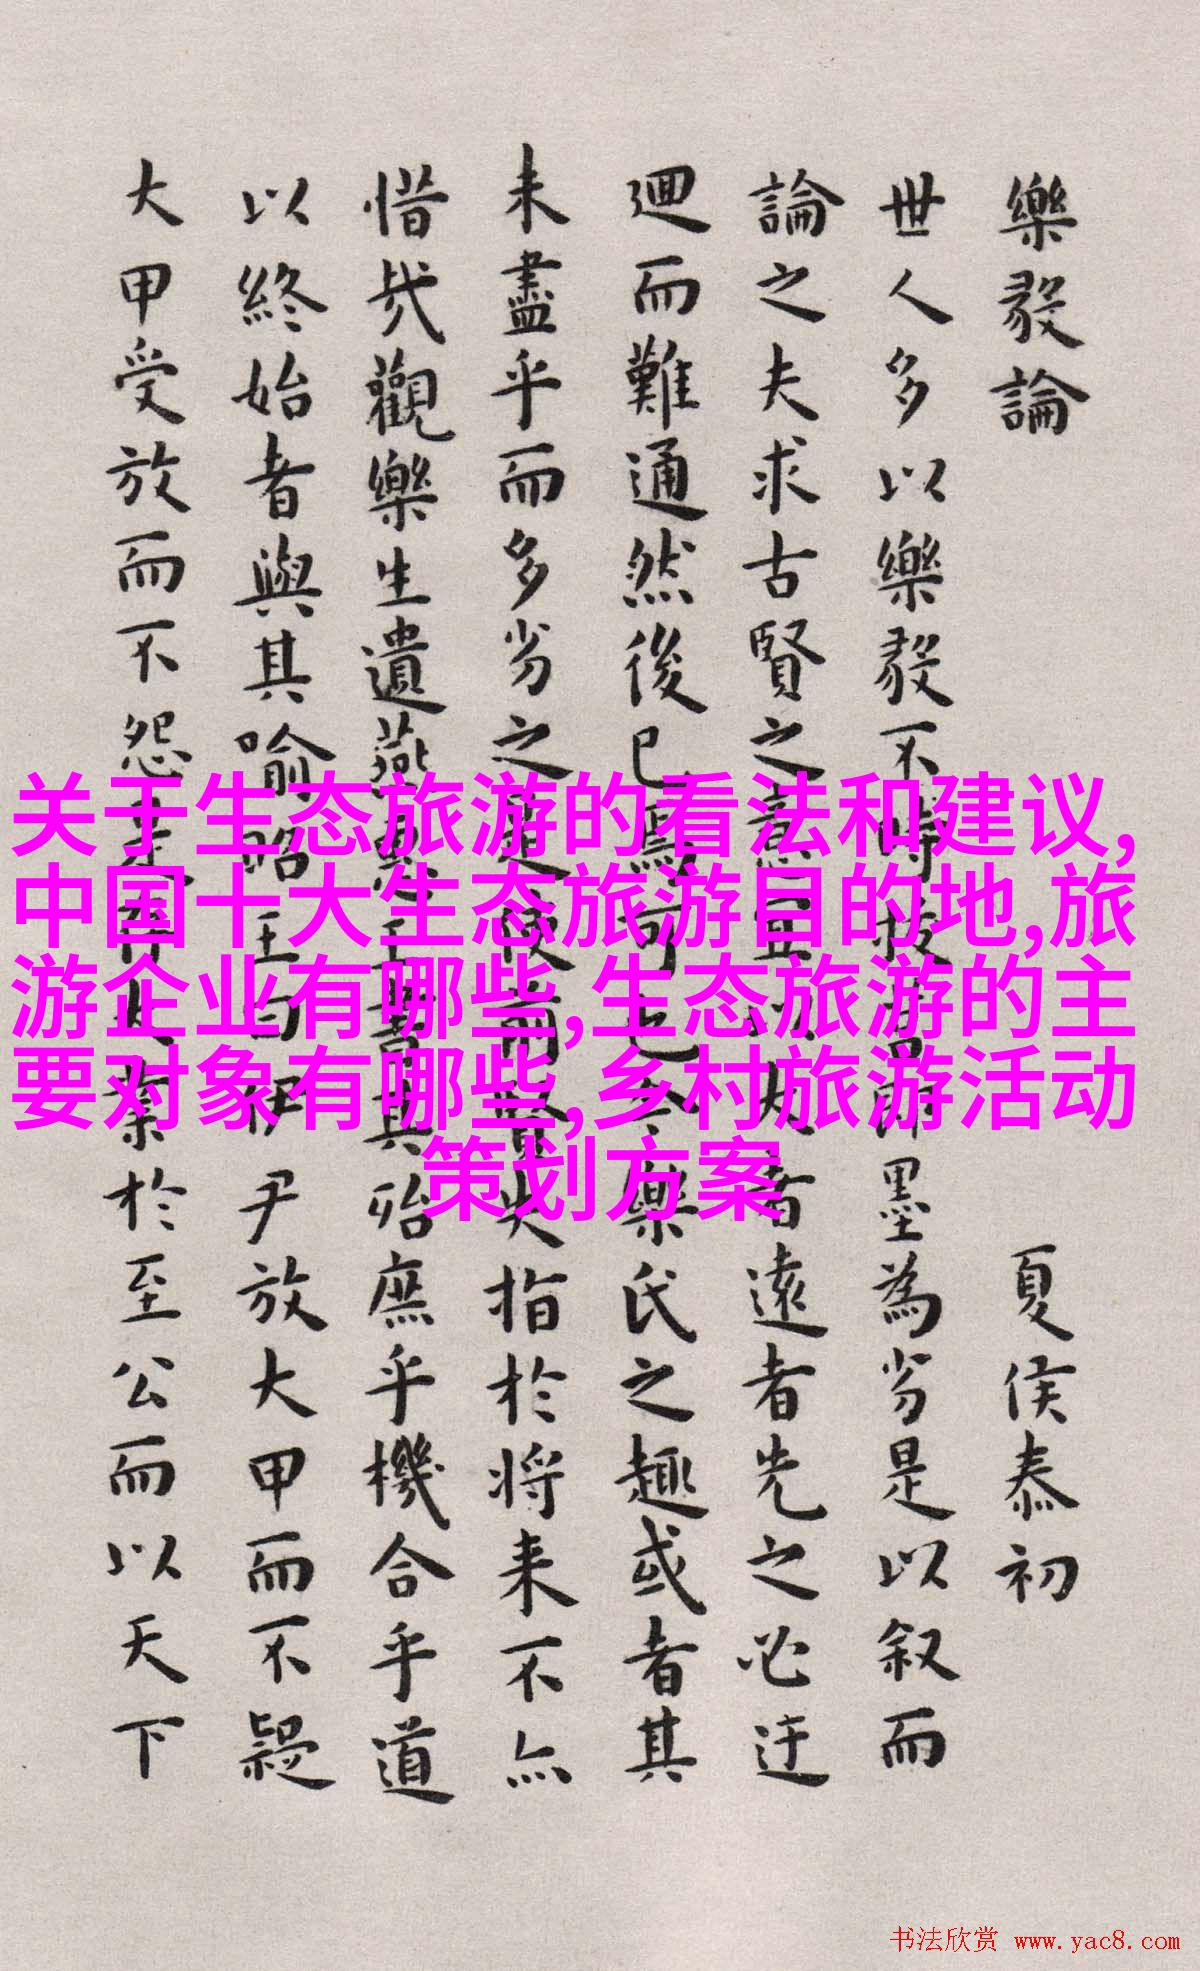 樂毅論
夏侯泰初
世人多以樂毅不時拔莒即墨為劣是以叙而
論之夫求古賢之意宜以大者遠者先之必迂
迴而難通然後已焉可也今樂氏之趣或者其
未盡乎而多劣之是使前賢失指於将来不亦
惜哉觀樂生遺燕惠王書其殆庶乎機合乎道
以終始者與其喻昭王曰伊尹放大甲而不疑
大甲受放而不怨是存大業於至公而以天下
关于生态旅游的看法和建议,
中国十大生态旅游目的地,旅
游企业有哪些,生态旅游的主
要对象有哪些,乡村旅游活动
策划方案
书法欣赏 www.yac8.com